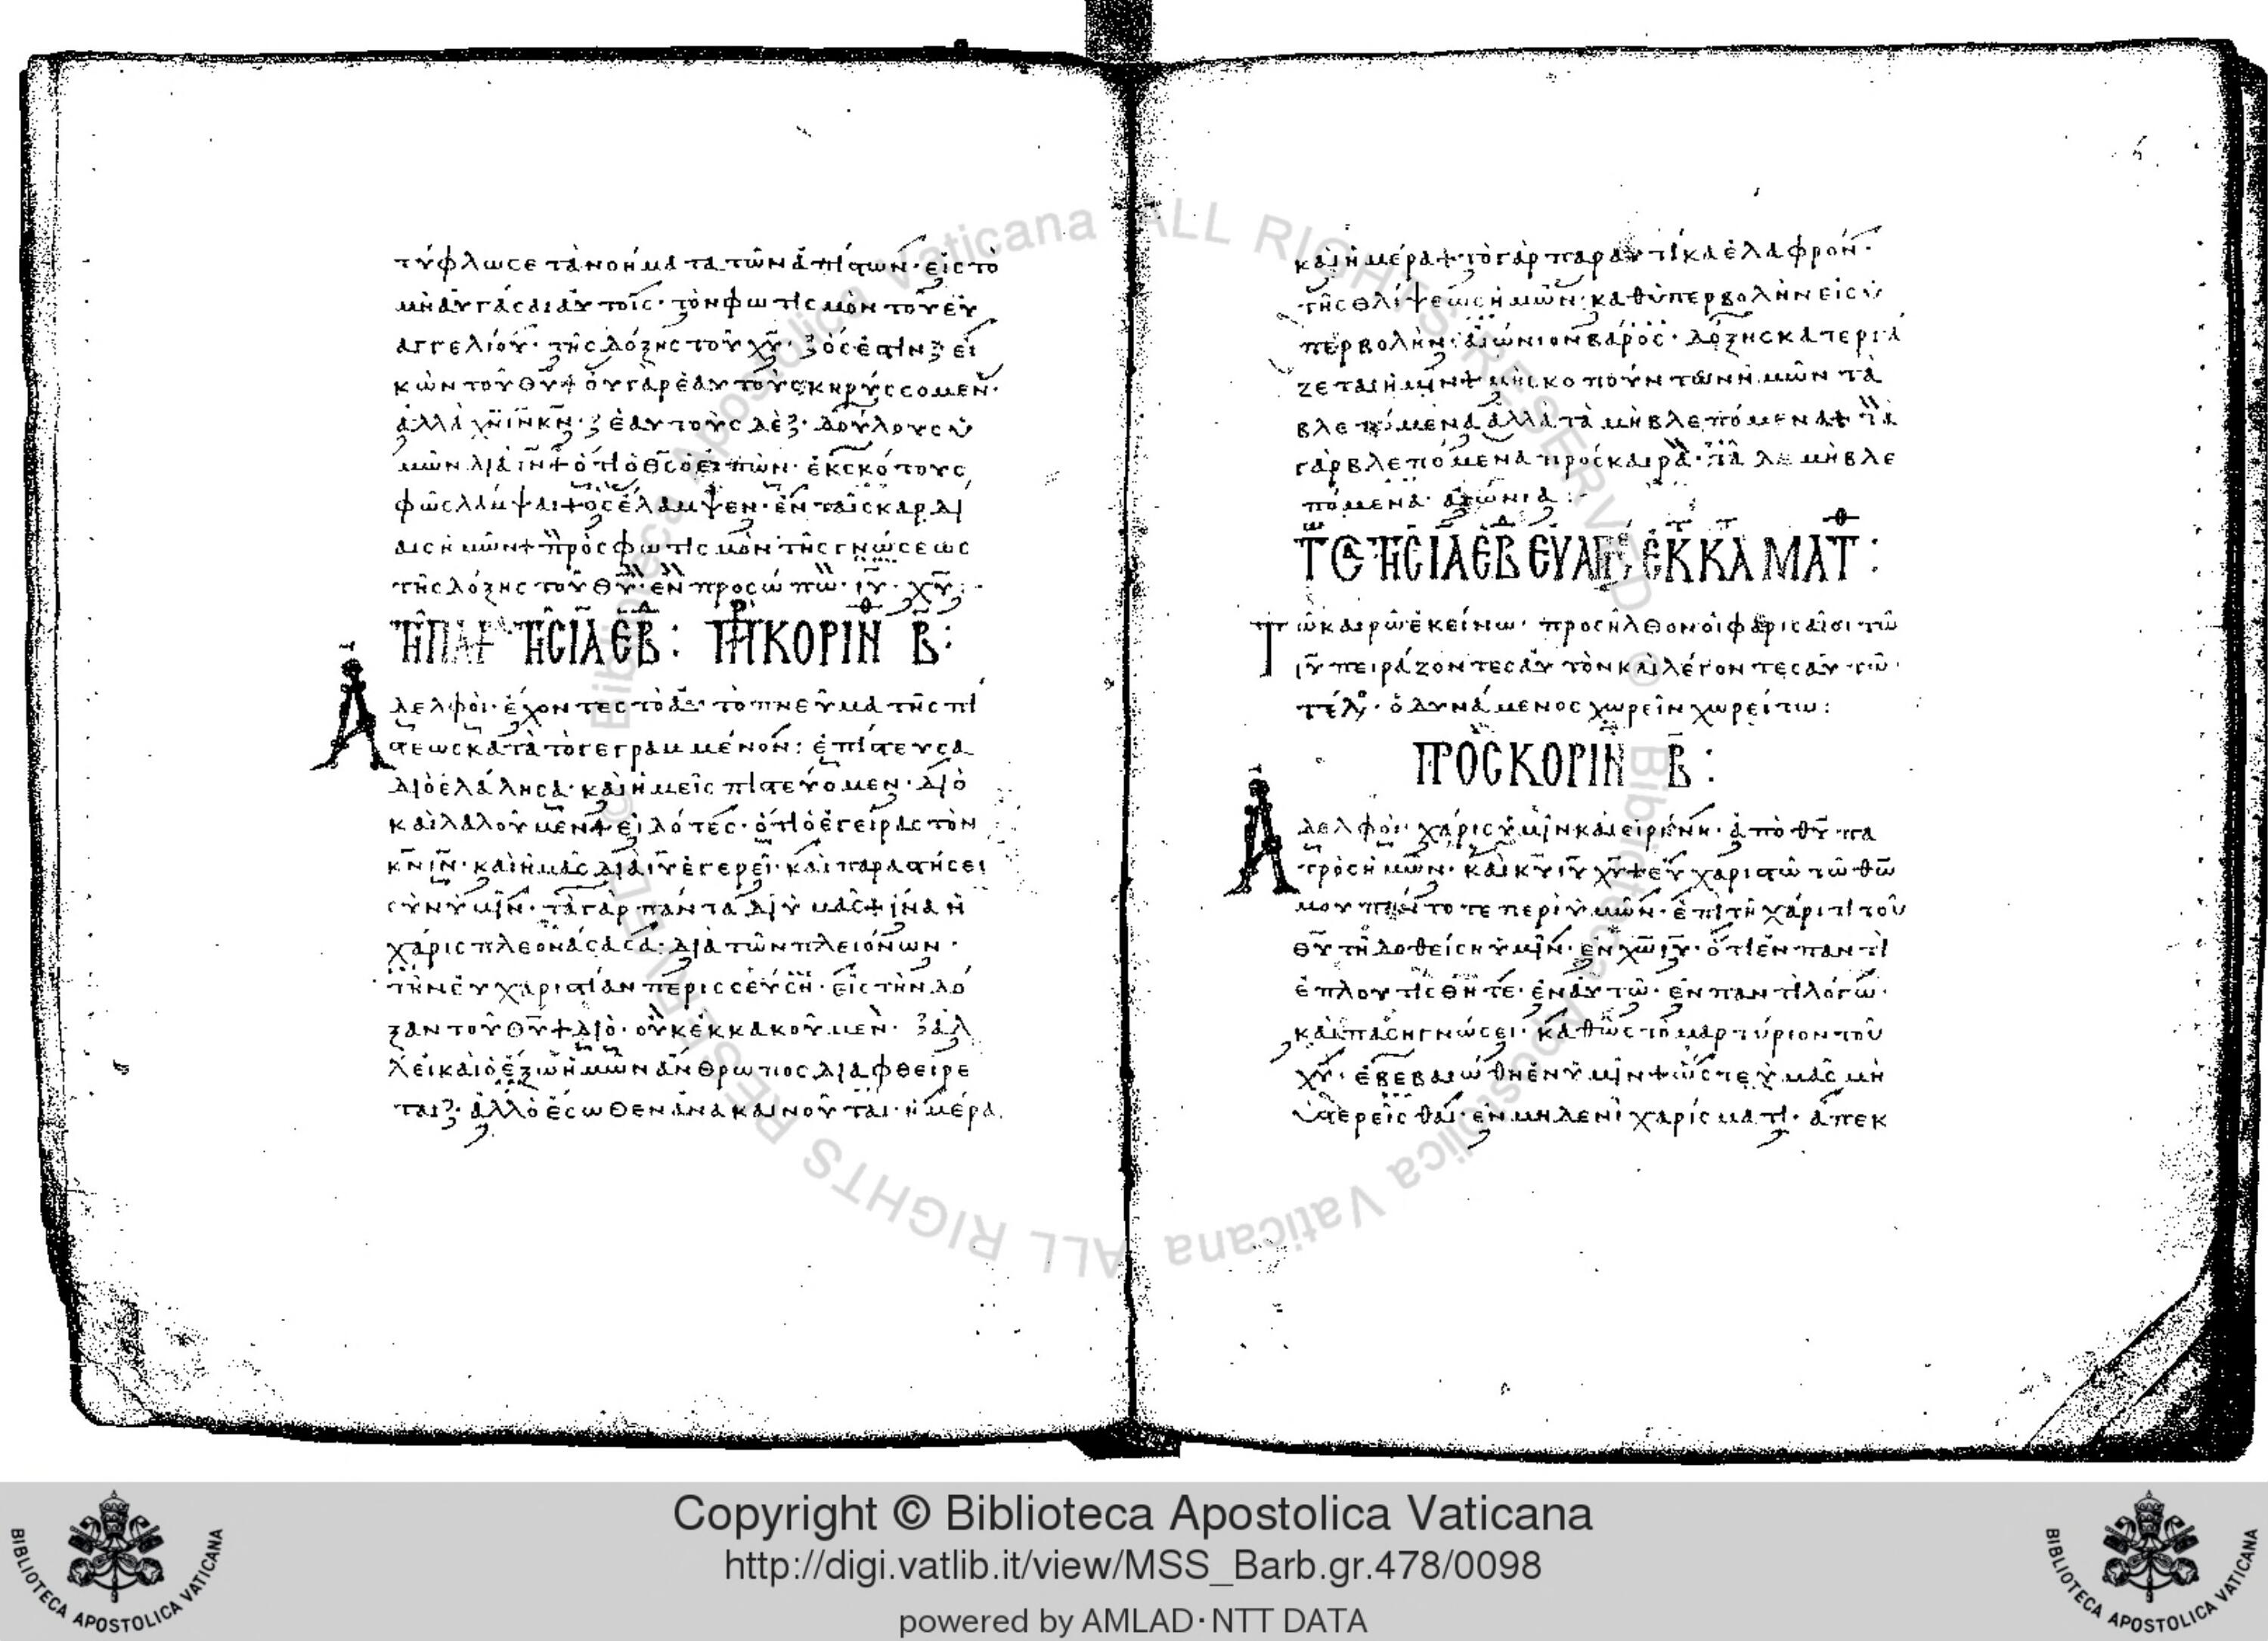 τύφλωσε τὰ νοήματα τῶν ἀπίστων· εἰς τὸ
μὴ αὐγάσαι αὐτοῖς· τὸν φωτισμὸν τοῦ εὐ
αγγελίου· τῆς δόξης τοῦ χυ̅· ὅς ἐστιν εἰ
κὼν τοῦ θυ̅+ οὐ γὰρ ἑαυτοὺς κηρύσσομεν·
ἀλλὰ χν̅ ιν̅ κν̅· ἑαυτοὺς δὲ· δούλους ὑ
μῶν διὰ ιν̅+ ὅτι ὁ θς̅ ὁ εἰπὼν· ἐκ σκότους
φῶς λάμψαι+ ὃς ἔλαμψεν· ἐν ταῖς καρδί
αις ἡμῶν+ πρὸς φωτισμὸν τῆς γνώσεως
τῆς δόξης τοῦ θυ̅· ἐν προσώπω· ιυ̅· χυ̅:
ΤΗ ΠΑΡ ΤΗΣ ΙΑ ΕΒΔ: ΠΡ ΚΟΡΙΝΘ Β:
Ἀδελφοὶ· ἔχοντες τὸ αὐτὸ πνεῦμα τῆς πί
στεως κατὰ τὸ γεγραμμένον: ἐπίστευσα
διὸ ἐλάλησα· καὶ ἡμεῖς πιστεύομεν· διὸ
καὶ λαλοῦμεν+ εἰδότες· ὅτι ὁ ἐγείρας τὸν
κν̅ ιν̅· καὶ ἡμᾶς διὰ ιυ̅ ἐγερεῖ· καὶ παραστήσει
σὺν ὑμῖν· τὰ γὰρ πάντα δι' ὑμᾶς+ ἵνα ἡ
χάρις πλεονάσασα· διὰ τῶν πλειόνων·
τὴν εὐχαριστίαν περισσεύση· εἰς τὴν δό
ξαν τοῦ θυ̅+ διὸ· οὐκ ἐκκακοῦμεν· ἀλ
λ' εἰ καὶ ὁ ἔξω ἡμῶν ἄνθρωπος διαφθείρε
ται· ἀλλ' ὁ ἔσωθεν ἀνακαινοῦται· ἡμέρα
καὶ ἡμέρα+ τὸ γὰρ παραυτίκα ἐλαφρὸν·
τῆς θλίψεως ἡμῶν· καθ' ὑπερβολὴν εἰς ὑ
περβολὴν· αἰώνιον βάρος· δόξης κατεργά
ζεται ἡμῖν+ μὴ σκοπούντων ἡμῶν τὰ
βλεπόμενα ἀλλὰ τὰ μὴ βλεπόμενα+ τὰ
γὰρ βλεπόμενα πρόσκαιρα· τὰ δὲ μὴ βλε
πόμενα· αἰώνια:
ΤΩ Σ ΤΗΣ ΙΑ ΕΒΔ ΕΥΑΓΓΕ ΕΚ Τ ΚΑΤ ΜΑΤΘ:
Τῶ καιρῶ ἐκείνω· προσῆλθον οἱ φαρισαῖοι τῶ
ιυ̅ πειράζοντες αὐτὸν καὶ λέγοντες αὐτῶ·
τέλος· ὁ δυνάμενος χωρεῖν χωρείτω:
ΠΡΟΣ ΚΟΡΙΝΘ Β:
Ἀδελφοὶ· χάρις ὑμῖν καὶ εἰρήνη· ἀπὸ θυ̅ πα
τρὸς ἡμῶν· καὶ κυ̅ ιυ̅ χυ̅+ εὐχαριστῶ τῶ θῶ̅
μου πάντοτε περὶ ὑμῶν· ἐπὶ τῆ χάριτι τοῦ
θυ̅ τῆ δοθείση ὑμῖν· ἐν χω̅ ιυ̅· ὅτι ἐν παντὶ
ἐπλουτίσθητε· ἐν αὐτῶ· ἐν παντὶ λόγω·
καὶ πάση γνώσει· καθὼς τὸ μαρτύριον τοῦ
χυ̅· ἐβεβαιώθη ἐν ὑμῖν+ ὥστε ὑμᾶς μὴ
ὑστερεῖσθαι· ἐν μηδενὶ χαρίσματι· ἀπεκ
Copyright © Biblioteca Apostolica Vaticana
http://digi.vatlib.it/view/MSS_Barb.gr.478/0098
powered by AMLAD·NTT DATA